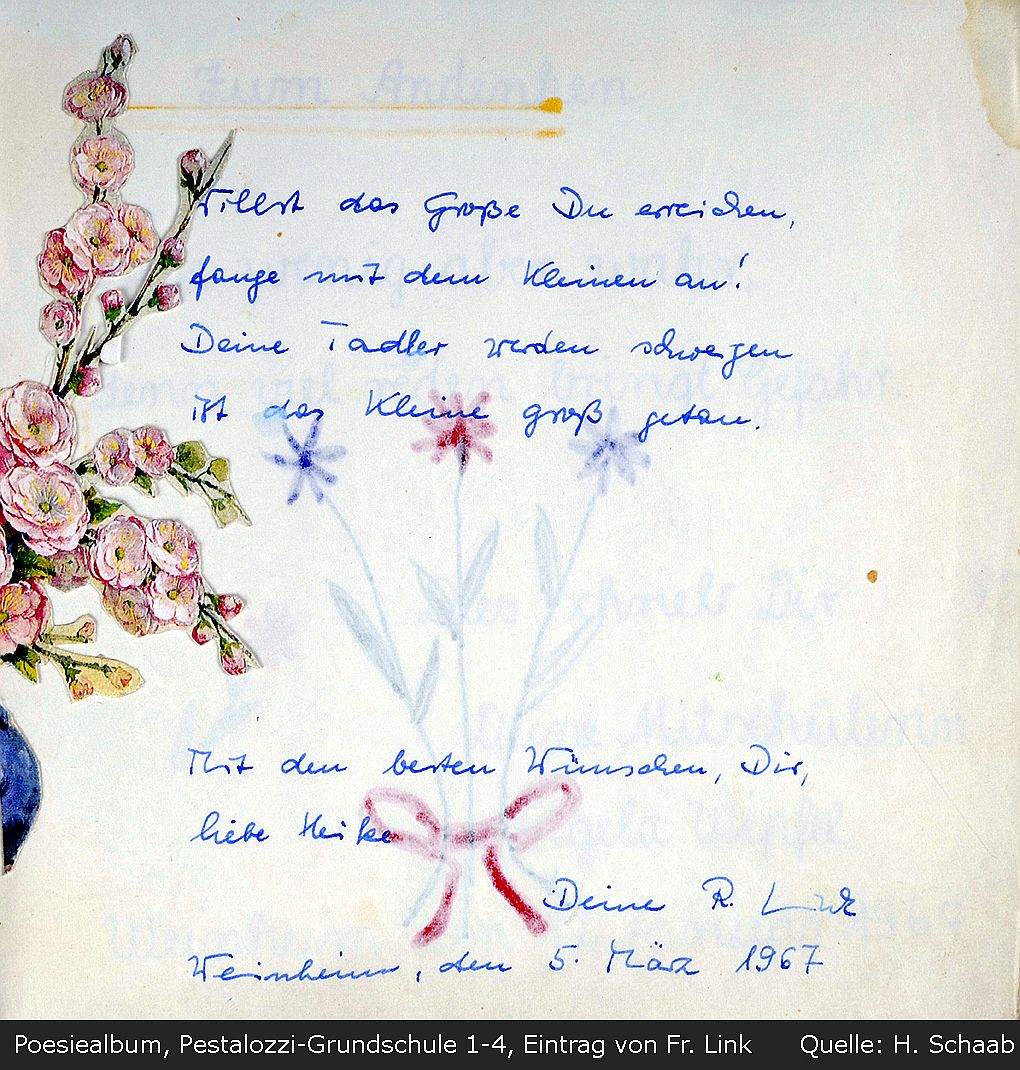 Zum Andenken
Willst das Große Du erreichen,
fange mit dem Kleinen an!
Deine Tadler werden schweigen
ist das Kleine groß getan.
Mit den besten Wünschen, Dir,
liebe Heike
Deine R. Link
Weinheim, den 5. März 1967
Poesiealbum, Pestalozzi-Grundschule 1-4, Eintrag von Fr. Link Quelle: H. Schaab